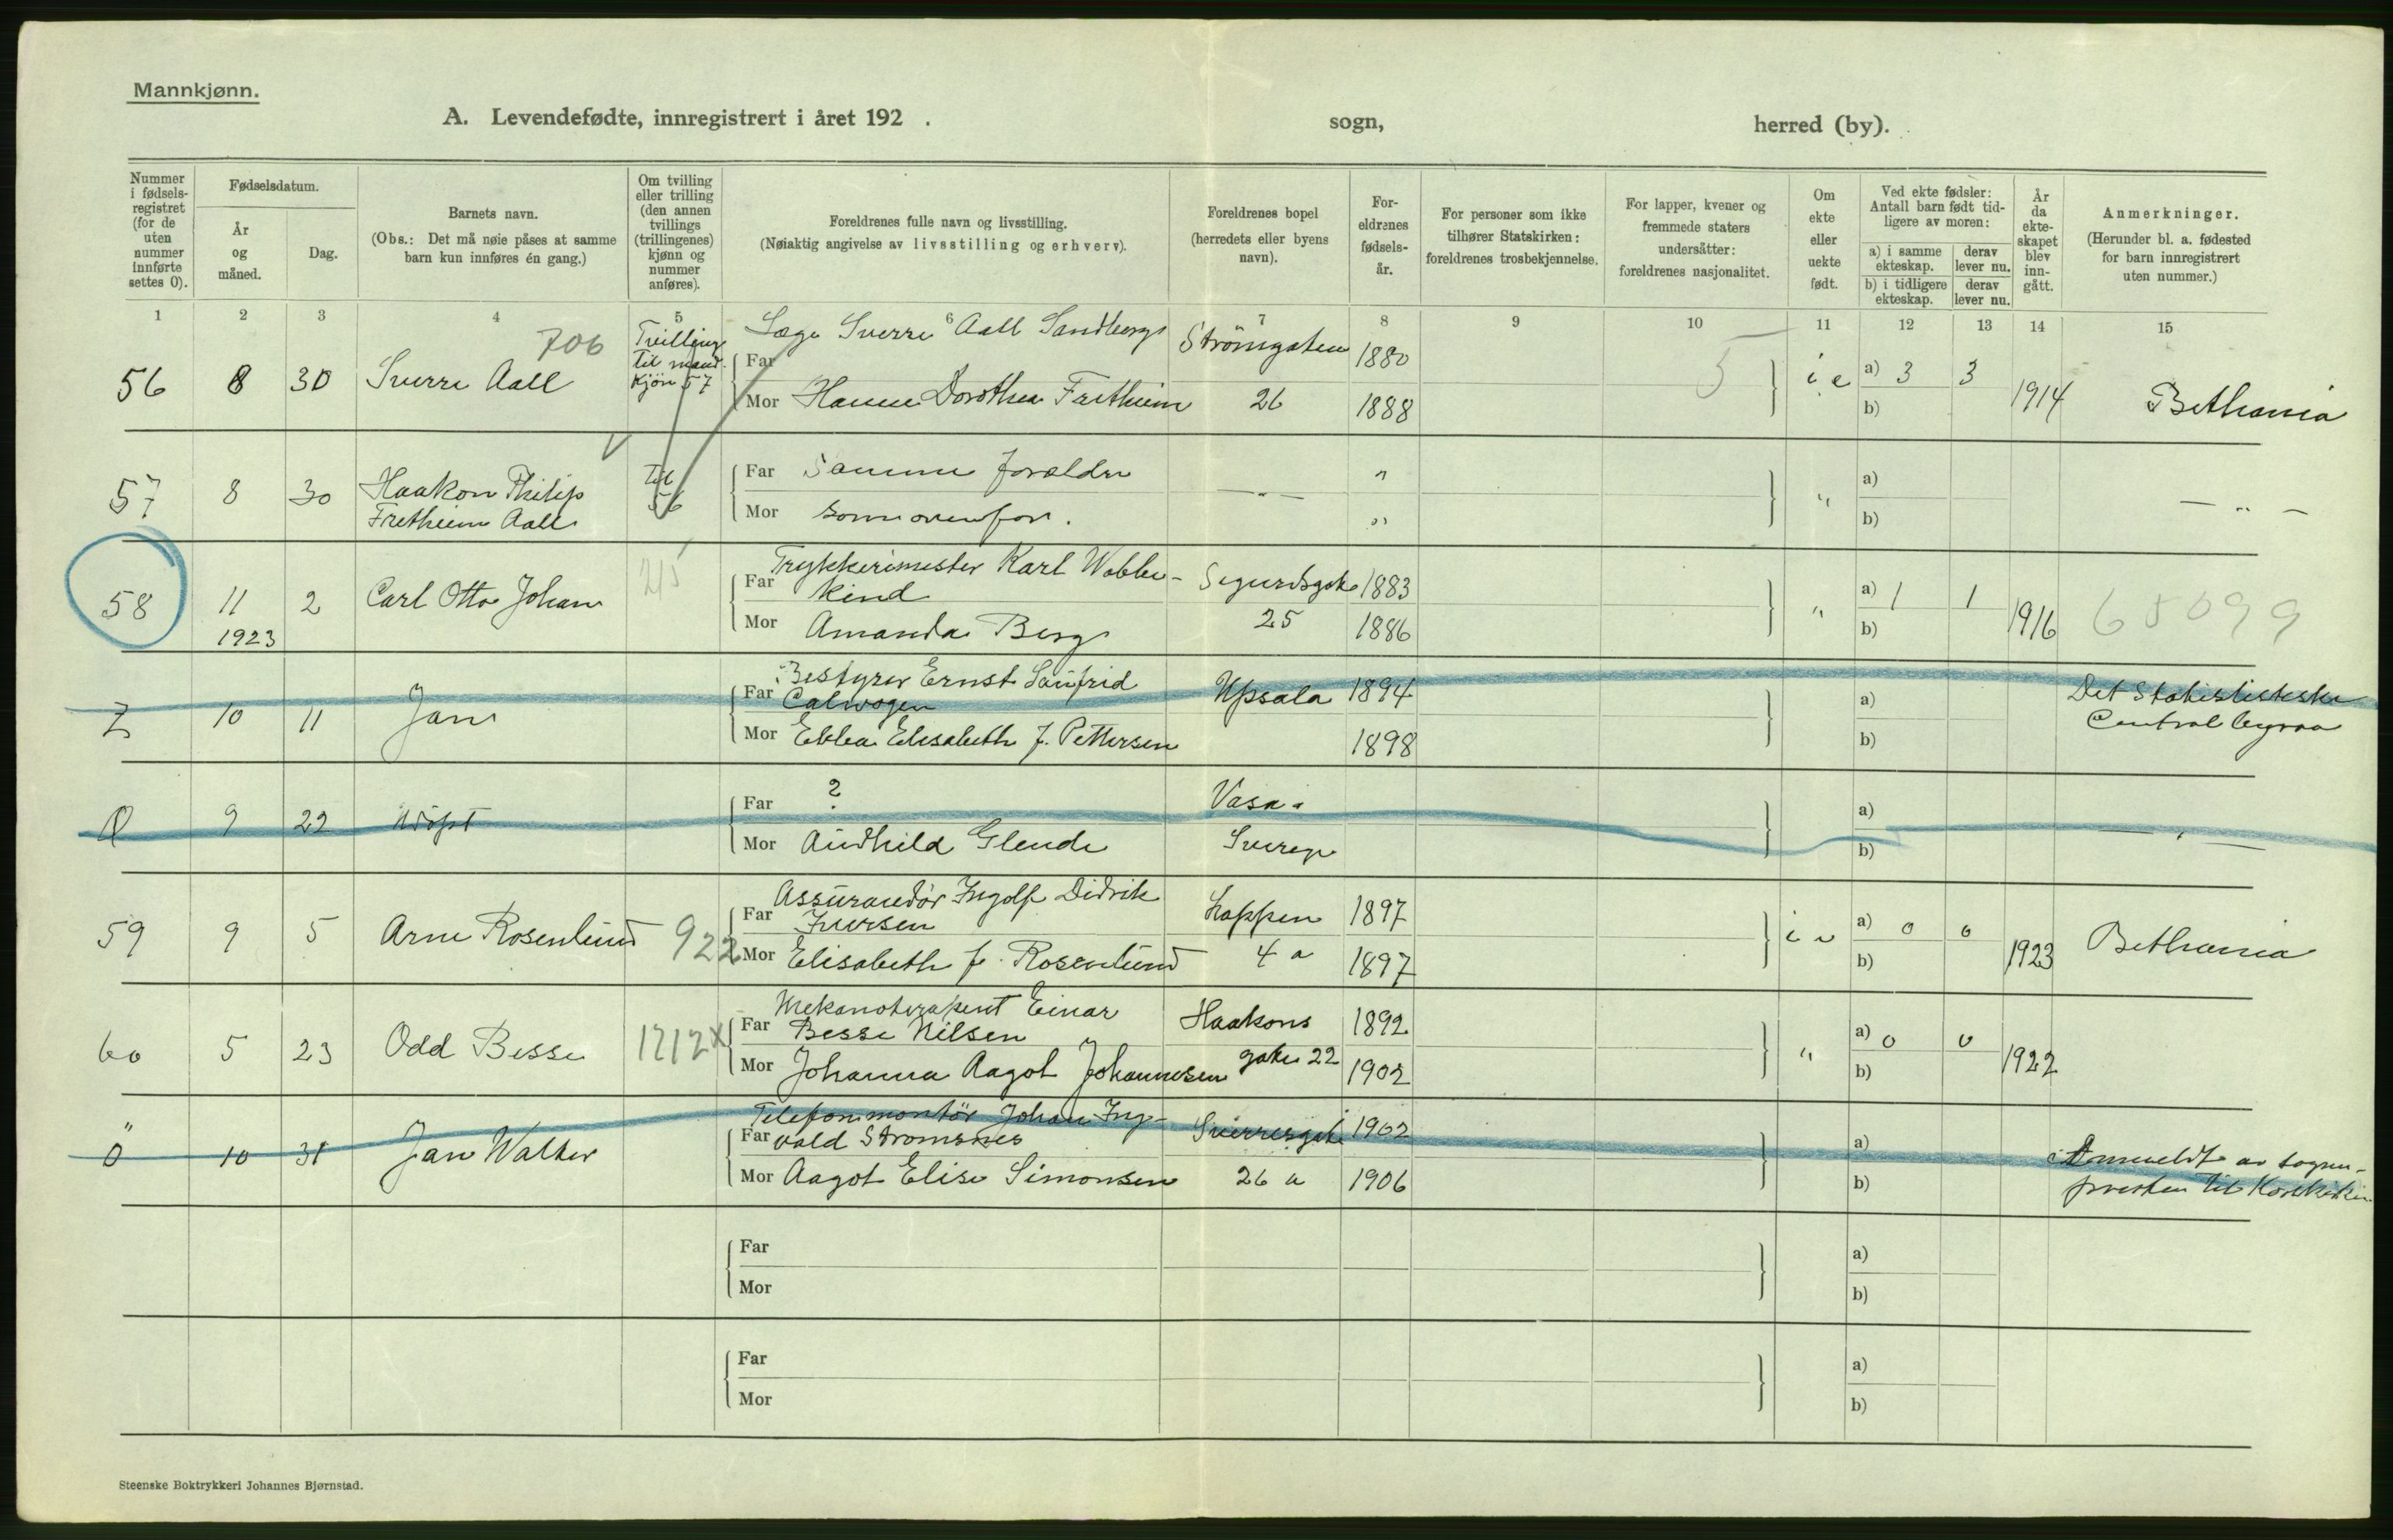 Mannkjønn.
A. Levendefødte, innregistrert i året 192 . sogn, herred (by).
Nummer i fødsels-registret (for de uten nummer innførte settes 0).
Fødselsdatum.
År og måned.
Dag.
Barnets navn.
(Obs.: Det må nøie påses at samme barn kun innføres én gang.)
Om tvilling eller trilling (den annen tvillings (trillingenes) kjønn og nummer anføres).
Foreldrenes fulle navn og livsstilling.
(Nøiaktig angivelse av livsstilling og erhverv).
Foreldrenes bopel (herredets eller byens navn).
For-eldrenes fødsels-år.
For personer som ikke tilhører Statskirken: foreldrenes trosbekjennelse.
For lapper, kvener og fremmede staters undersåtter: foreldrenes nasjonalitet.
Om ekte eller uekte født.
Ved ekte fødsler: Antall barn født tid-ligere av moren:
a) i samme ekteskap. derav lever nu.
b) i tidligere ekteskap. derav lever nu.
År da ekte-skapet blev inn-gått.
Anmerkninger.
(Herunder bl. a. fødested for barn innregistrert uten nummer.)
1 2 3 4 5 6 7 8 9 10 11 12 13 14 15
706 Tvilling Læge Sverre Aall Sandberg Strömgaten 1880
til mand- Far
56 8 30 Sverre Aall kjön 57 5 i e a) 3 3
Mor Hanne Dorothea Fretheim 26 1888 b) 1914 Bethania
57 8 30 Haakon Philip til Far Samme forældre — " — " " a) — " —
Fretheim Aall 56 Mor som ovenfor. " b)
Trykkerimester Karl Wobbe-
58 11 2 Carl Otto Johan 215 Far kind Sigurdsgate 1883 " a) 1 1 65099
1923 Mor Amanda Berg 25 1886 b) 1916
Bestyrer Ernst Sanfrid
10 11 Jan Far Calwagen Upsala 1894 a) Det Statistiske
Mor Ebba Elisabeth f. Pettersen 1898 b) Centralbyraa
0 9 22 udöpt Far ? Vasa a)
Mor Audhild Glende b) — " —
Assurandör Ingolf Didrik
59 9 5 Arne Rosenlund 922 Far Iversen Loppen 1897 a) 0 0 Bethania
Mor Elisabeth f. Rosenlund 4 a 1897 b) 1923
Mekanoterapeut Einar
60 5 23 Odd Besse 1212 x Far Besse Nilsen Haakons 1892 " a) 0 0
Mor Johanna Aagot Johannesen gate 22 1902 b) 1922
Telefonmontör Johan Ing-
0 10 31 Jan Walter Far vald Stromsnes Sverresgate 1902 a) Anmeldt av sogne-
Mor Aagot Elise Simonsen 26 a 1906 b) presten til Korskirken
Far a)
Mor b)
Far a)
Mor b)
Steenske Boktrykkeri Johannes Bjørnstad.